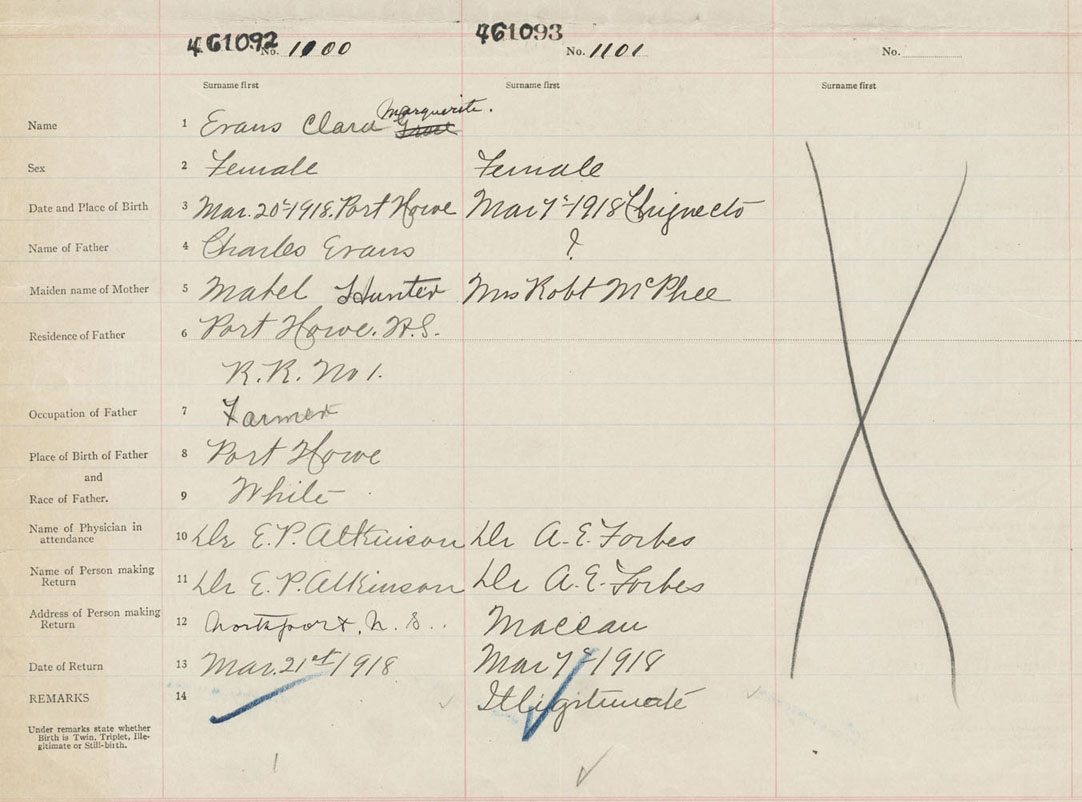 461092 461093
No. 1100 No. 1101 No.
Surname first Surname first Surname first
Marguerite.
Name 1 Evans Clara Grace
Sex 2 Female Female
Date and Place of Birth 3 Mar. 20th 1918. Port Howe Mar 7th 1918 Chignecto
Name of Father 4 Charles Evans ?
Maiden name of Mother 5 Mabel Hunter Mrs Robt McPhee
Residence of Father 6 Port Howe. N.S.
R.R. No 1.
Occupation of Father 7 Farmer
Place of Birth of Father 8 Port Howe
and
Race of Father. 9 White
Name of Physician in
attendance 10 Dr E.P. Atkinson Dr A.E. Forbes
Name of Person making
Return 11 Dr E.P. Atkinson Dr A.E. Forbes
Address of Person making
Return 12 Northport, N.S.. Maccan
Date of Return 13 Mar. 21st 1918 Mar 7th 1918
REMARKS 14 Illigitimate
Under remarks state whether
Birth is Twin, Triplet, Ille-
gitimate or Still-birth.